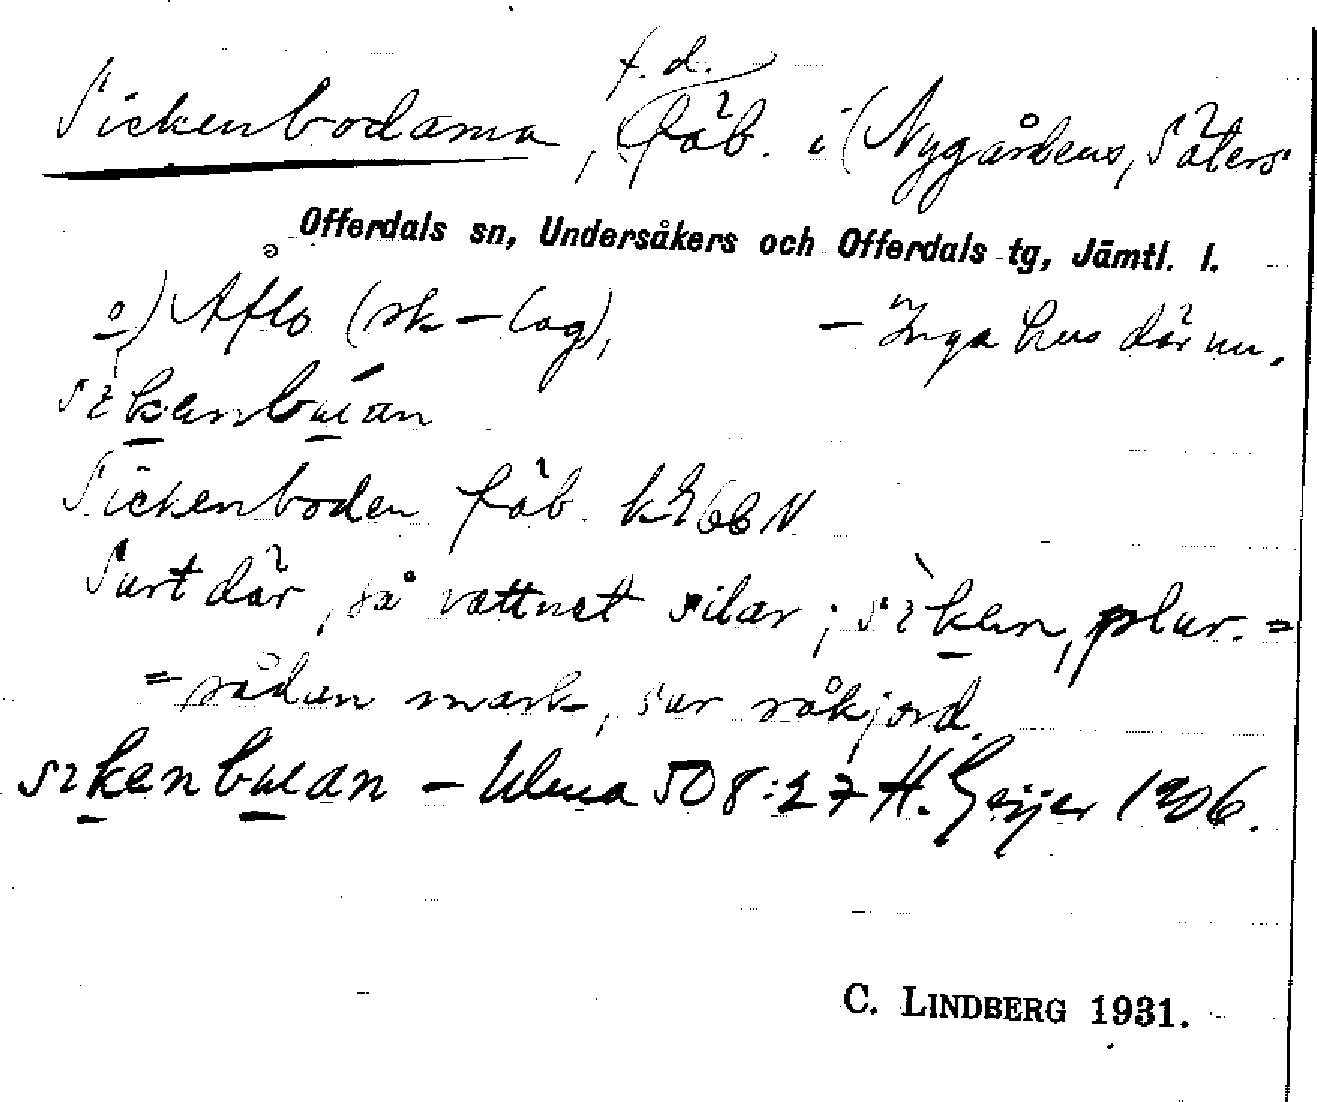 f. d.
Sickenbodarna, fäb. i (Nygårdens, Säters
Offerdals sn, Undersåkers och Offerdals tg, Jämtl. l.
o) Åflo (sk-lag), – Inga hus där nu.
Sickenboden fäb. k Ek 66 N
Surt där, så vattnet silar; sìken, plur. =
= sådan mark, sur råkjord.
– Ulma 508:27 H. Geijer 1906.
C. LINDBERG 1931.